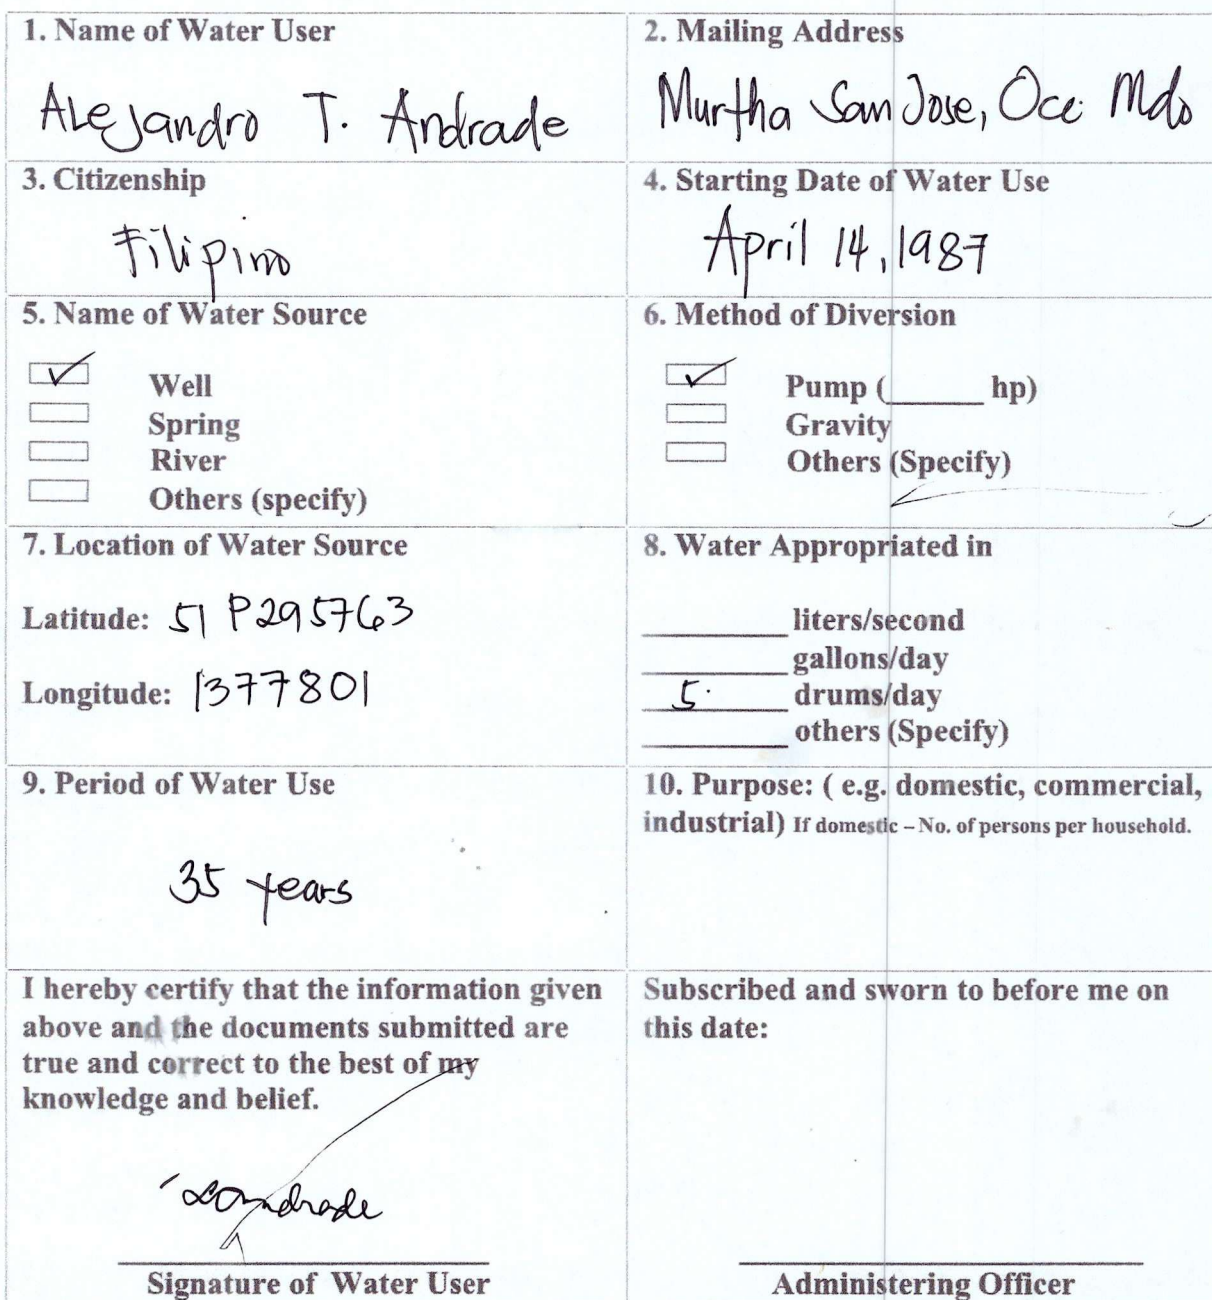 1. Name of Water User
ALeJandro T. Andrade
2. Mailing Address
Murtha San Jose, Occ Mdo
3. Citizenship
Filipino
4. Starting Date of Water Use
April 14, 1987
5. Name of Water Source
Well
Spring
River
Others (specify)
6. Method of Diversion
Pump (______ hp)
Gravity
Others (Specify)
7. Location of Water Source
Latitude: 51 P295763
Longitude: 1377801
8. Water Appropriated in
_________ liters/second
_________ gallons/day
5 drums/day
_________ others (Specify)
9. Period of Water Use
35 years
10. Purpose: ( e.g. domestic, commercial,
industrial) If domestic – No. of persons per household.
I hereby certify that the information given
above and the documents submitted are
true and correct to the best of my
knowledge and belief.
Signature of Water User
Subscribed and sworn to before me on
this date:
Administering Officer